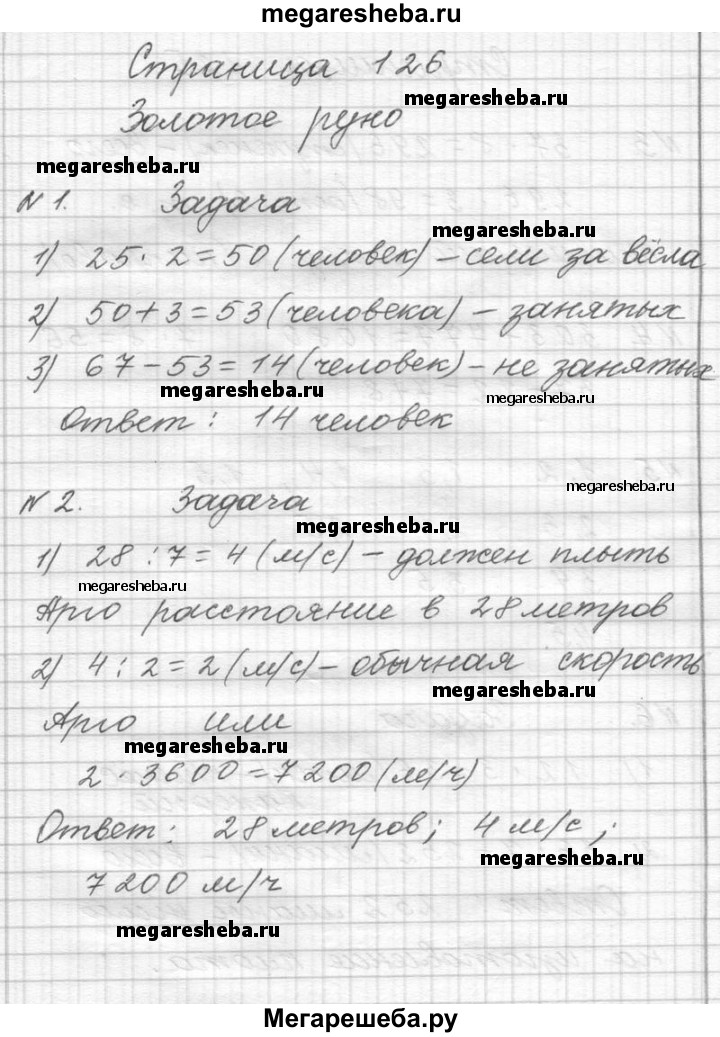 megaresheba.ru
Страница 126
megaresheba.ru
Золотое руно
megaresheba.ru
№ 1. Задача
megaresheba.ru
1) 25 · 2 = 50 (человек) – сели за вёсла
2) 50 + 3 = 53 (человека) – занятых
3) 67 – 53 = 14 (человек) – не занятых
megaresheba.ru
megaresheba.ru
Ответ: 14 человек
megaresheba.ru
№ 2. Задача
megaresheba.ru
1) 28 : 7 = 4 (м/с) – должен плыть
megaresheba.ru
Арго расстояние в 28 метров
2) 4 : 2 = 2 (м/с) – обычная скорость
megaresheba.ru
Арго или
megaresheba.ru
2 · 3600 = 7200 (м/ч)
Ответ: 28 метров; 4 м/с;
megaresheba.ru
7200 м/ч
megaresheba.ru
Мегарешеба.ру